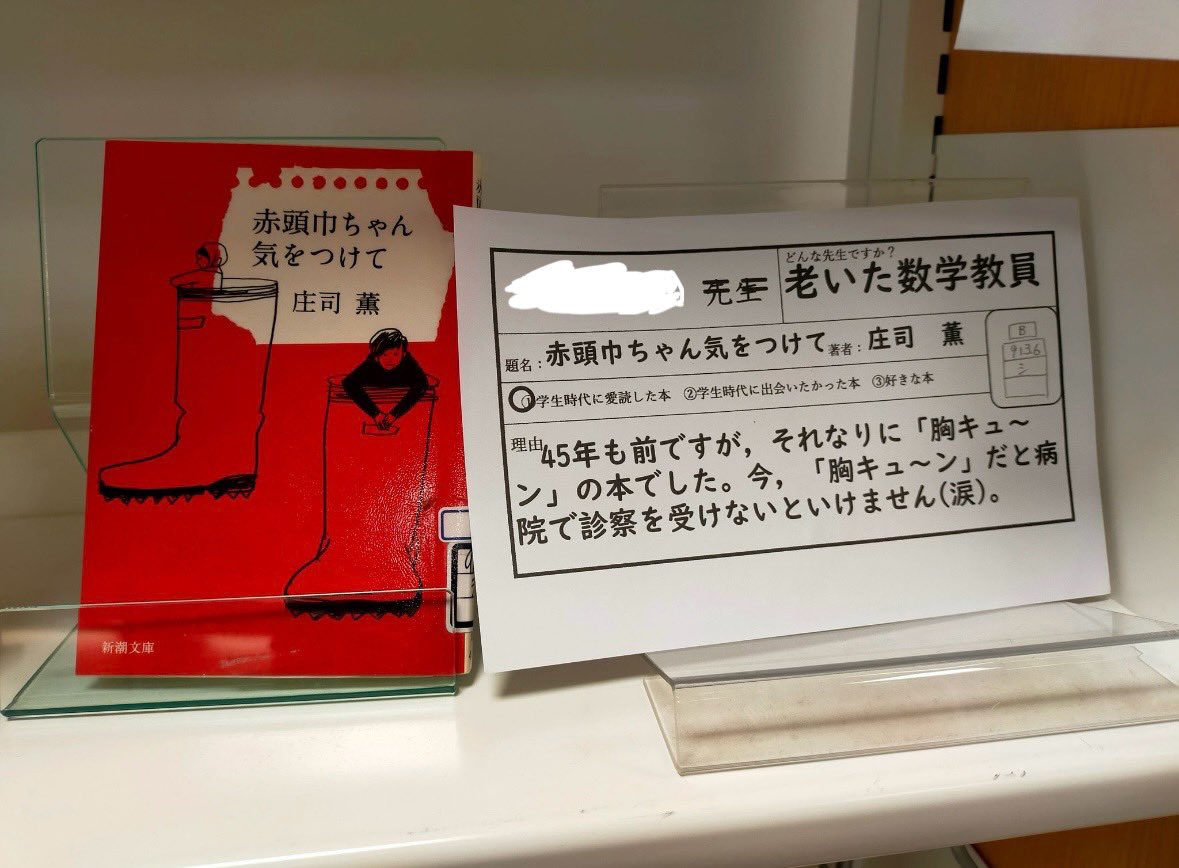 赤頭巾ちゃん
気をつけて
庄司 薫
新潮文庫
先生
どんな先生ですか?
老いた数学教員
題名:赤頭巾ちゃん気をつけて 著者:庄司 薫
B
913.6
シ
①学生時代に愛読した本 ②学生時代に出会いたかった本 ③好きな本
理由 45年も前ですが,それなりに「胸キュ〜
ン」の本でした。今,「胸キュ〜ン」だと病
院で診察を受けないといけません(涙)。